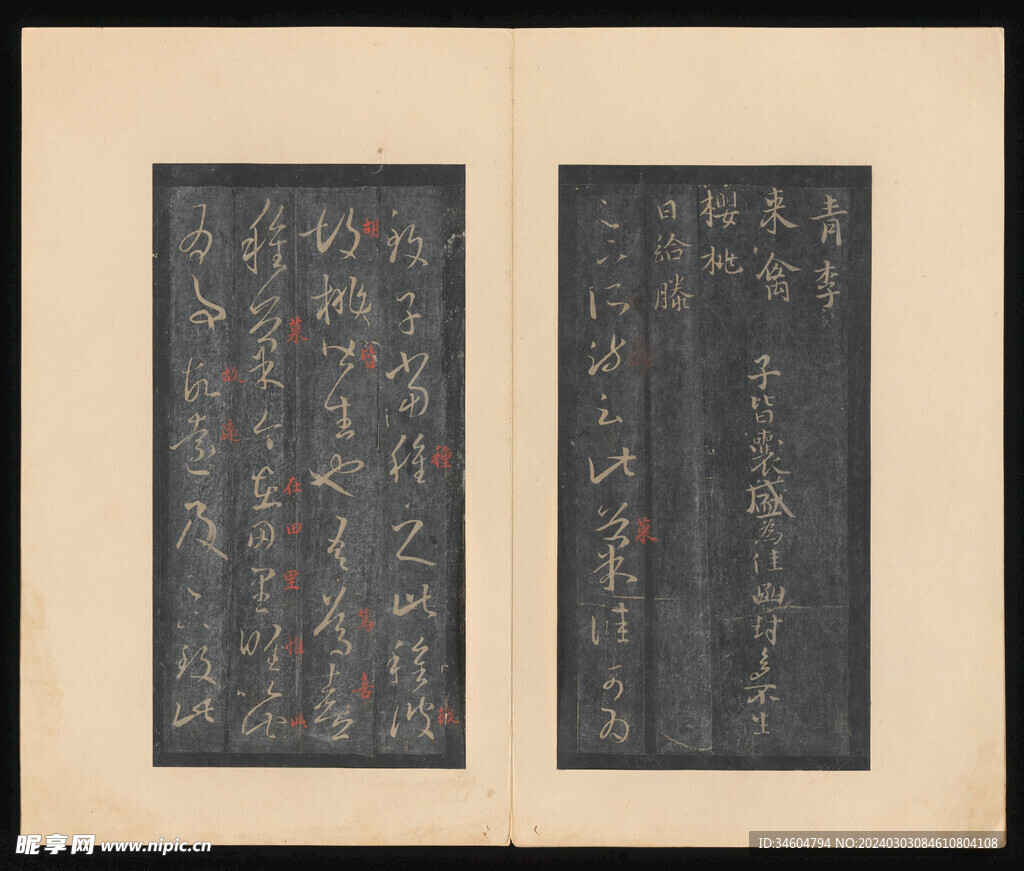 青李
來禽 子皆囊盛為佳函封多不生
櫻桃
日給滕
足下所疏云此菓佳可為
菓
致子當種之此種彼
種
胡桃皆生也吾篤喜
胡 皆 篤 喜
種菓今在田里唯以此
菓 在 田 里 惟 此
為事故遠及足下致此
故 遠
昵享网 www.nipic.cn
ID:34604794 NO:20240303084610804108